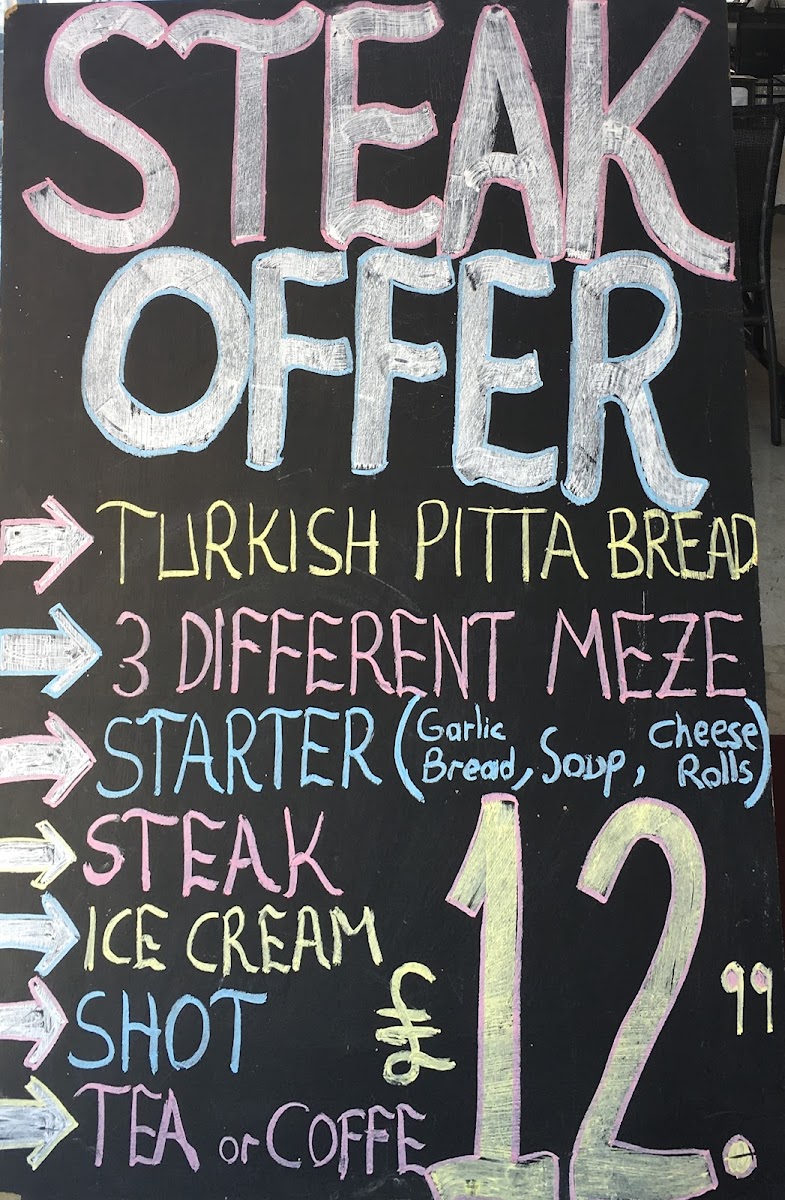 STEAK
OFFER
TURKISH PITTA BREAD
3 DIFFERENT MEZE
STARTER (Garlic Bread, Soup, Cheese Rolls)
STEAK
ICE CREAM
SHOT
TEA or COFFE
£12.99